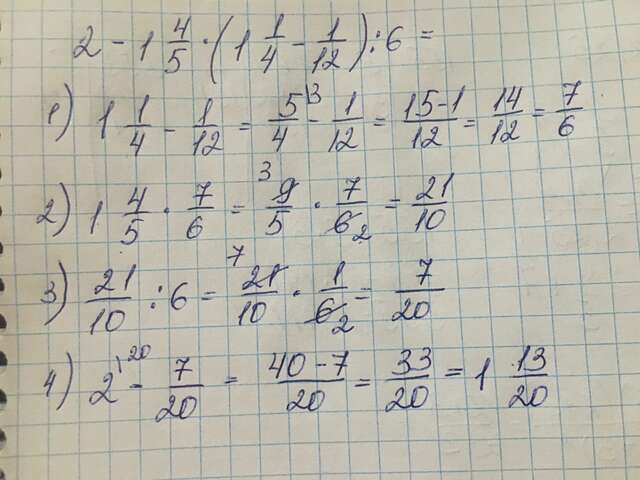 2 - 1 4/5 · (1 1/4 - 1/12) : 6 =
1) 1 1/4 - 1/12 = 5/4 ^3 - 1/12 = 15-1/12 = 14/12 = 7/6
2) 1 4/5 · 7/6 = ^3 9/5 · 7/6 _2 = 21/10
3) 21/10 : 6 = ^7 21/10 · 1/6 _2 = 7/20
4) 2 ^20 - 7/20 = 40-7/20 = 33/20 = 1 13/20